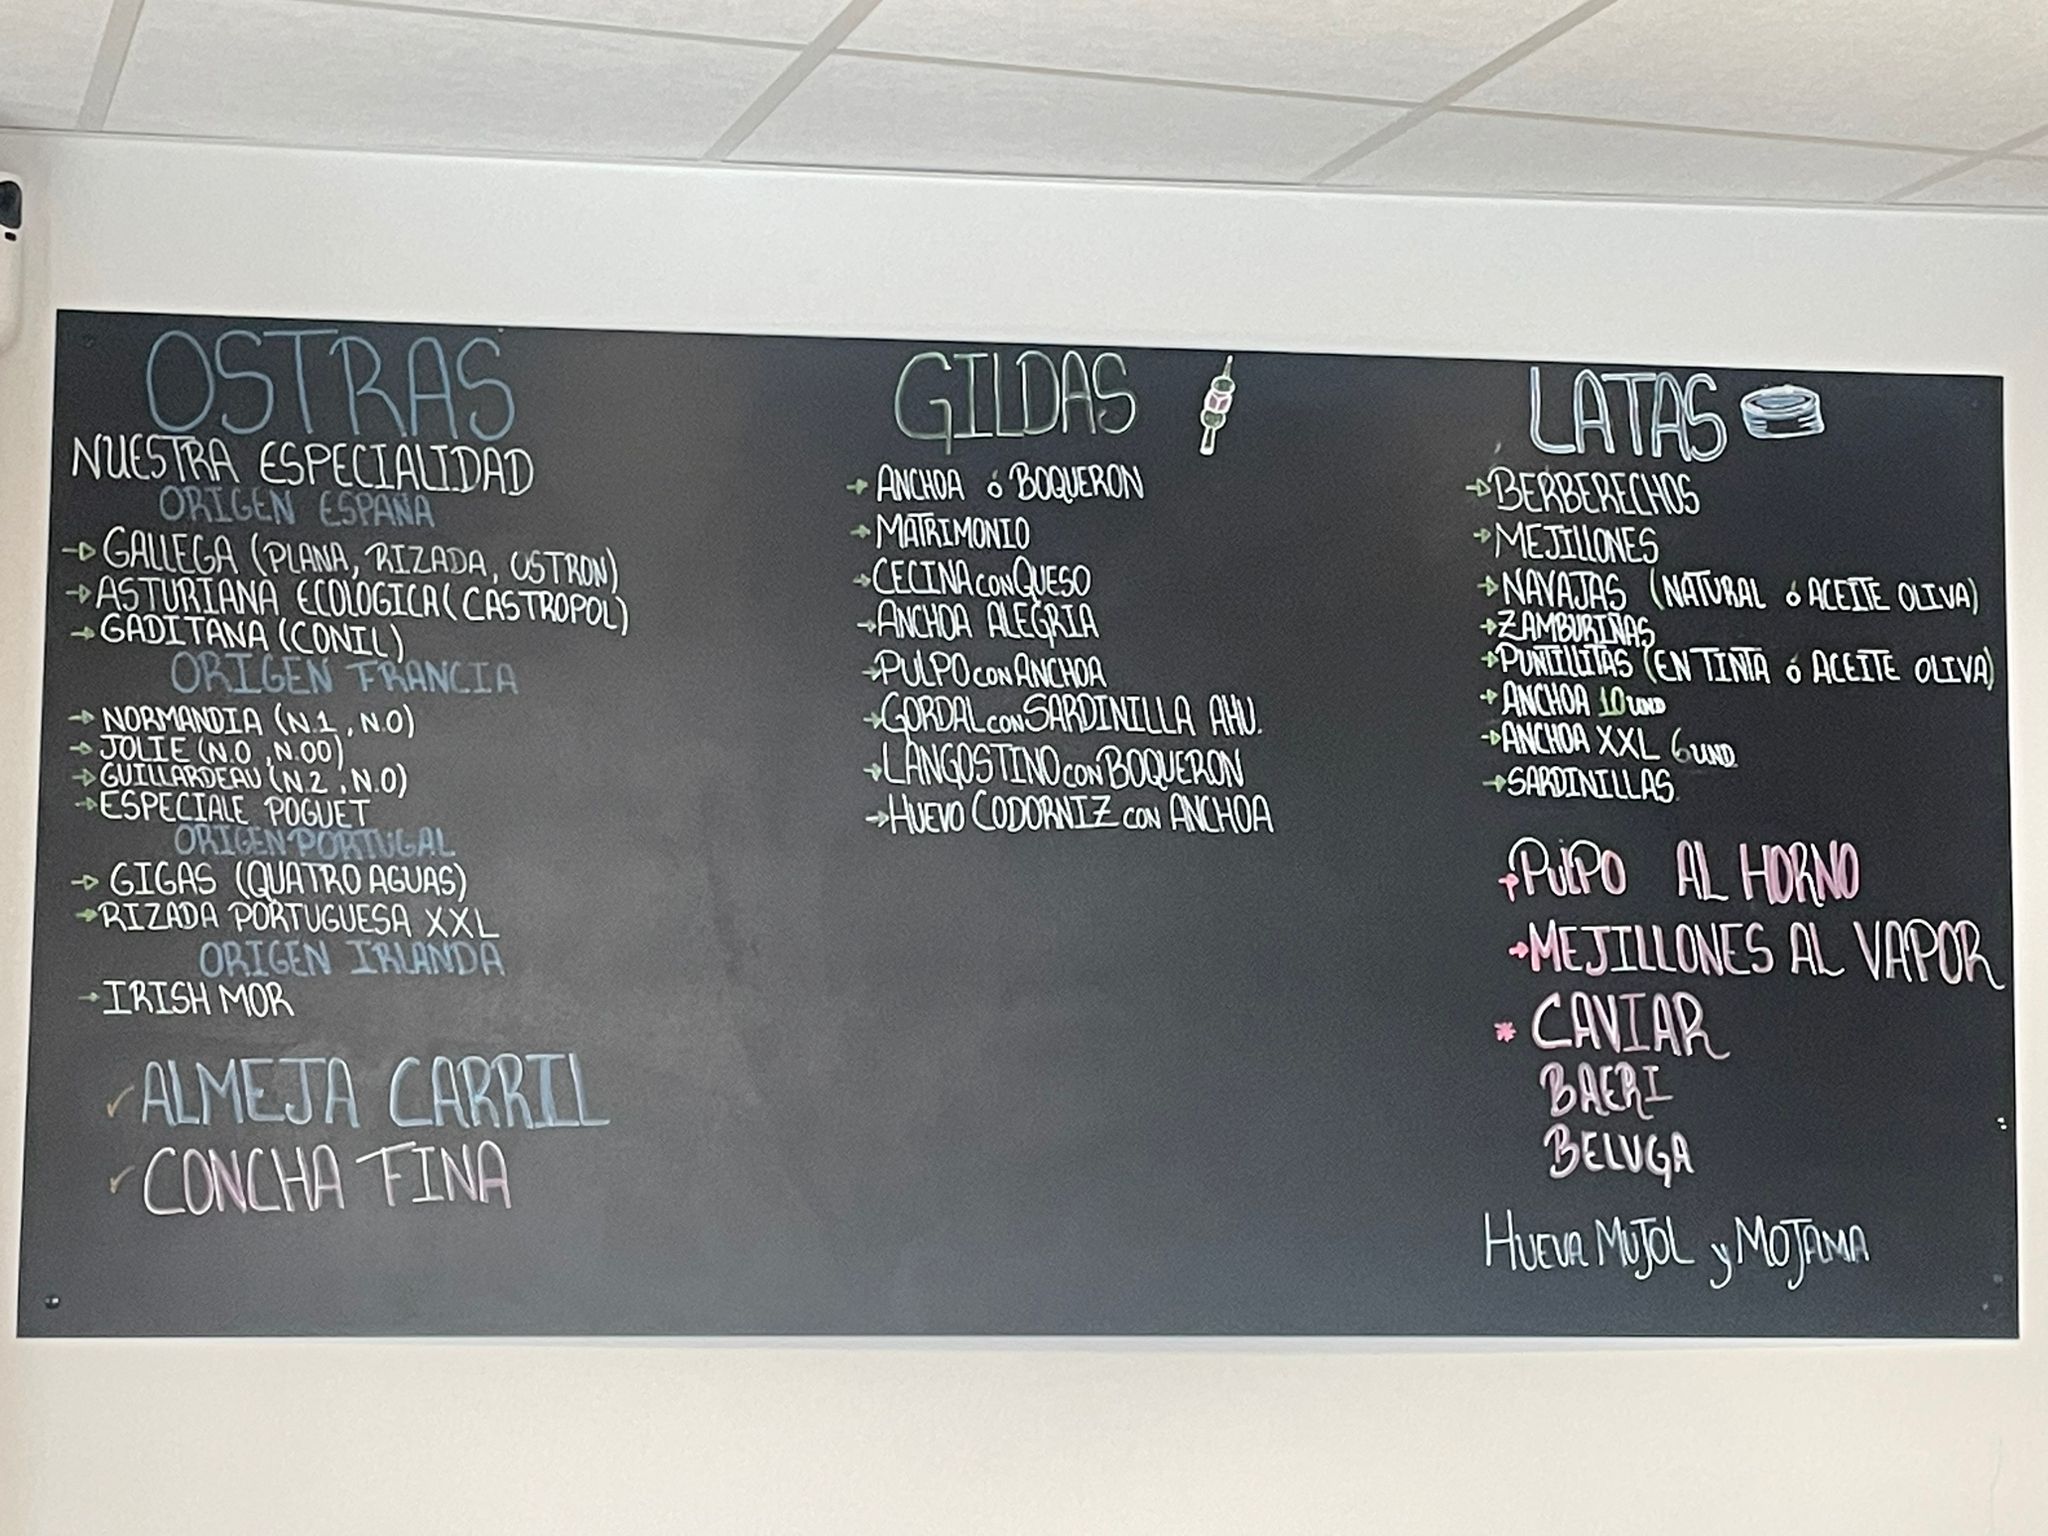 OSTRAS
NUESTRA ESPECIALIDAD
ORIGEN ESPAÑA
→ GALLEGA (PLANA, RIZADA, OSTRON)
→ ASTURIANA ECOLOGICA (CASTROPOL)
→ GADITANA (CONIL)
ORIGEN FRANCIA
→ NORMANDIA (N.1, N.0)
→ JOLIE (N.0, N.00)
→ GUILLARDEAU (N.2, N.0)
→ ESPECIALE POGUET
ORIGEN PORTUGAL
→ GIGAS (QUATRO AGUAS)
→ RIZADA PORTUGUESA XXL
ORIGEN IRLANDA
→ IRISH MOR
✓ ALMEJA CARRIL
✓ CONCHA FINA
GILDAS
→ ANCHOA ó BOQUERON
→ MATRIMONIO
→ CECINA con QUESO
→ ANCHOA ALEGRIA
→ PULPO con ANCHOA
→ GORDAL con SARDINILLA AHU.
→ LANGOSTINO con BOQUERON
→ HUEVO CODORNIZ con ANCHOA
LATAS
→ BERBERECHOS
→ MEJILLONES
→ NAVAJAS (NATURAL ó ACEITE OLIVA)
→ ZAMBURIÑAS
→ PUNTILLITAS (EN TINTA ó ACEITE OLIVA)
→ ANCHOA 10 UND
→ ANCHOA XXL 6 UND
→ SARDINILLAS
→ PULPO AL HORNO
→ MEJILLONES AL VAPOR
* CAVIAR
BAERI
BELUGA
HUEVA MUJOL y MOJAMA